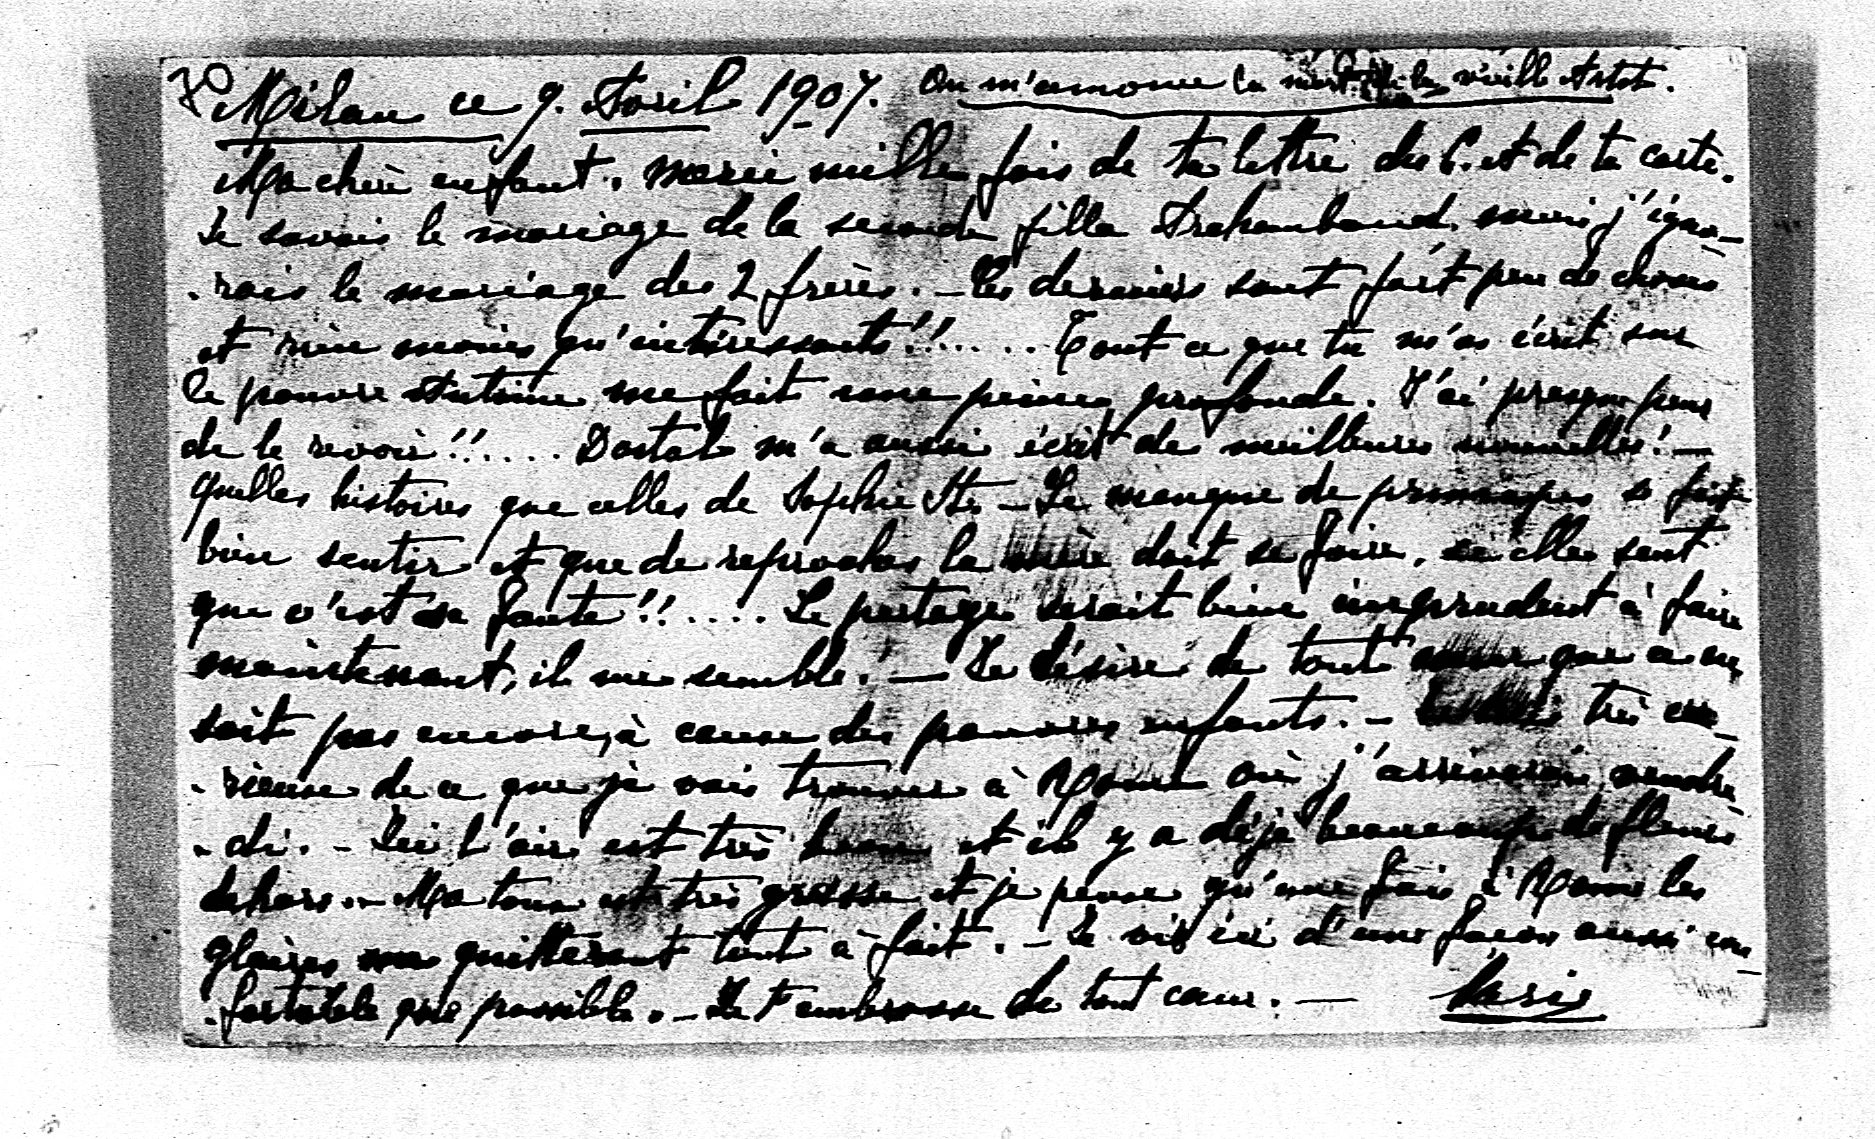 70
Milan ce 9. Avril 1907. On m'annonce la mort de la vieille Artot.
Ma chère enfant. Merci mille fois de ta lettre du 6. et de ta carte.
Je savais le mariage de la seconde fille mais j'igno-
-rais le mariage des 2 frères. — Ces derniers sont fort peu de chose
et rien moins qu'intéressants!!..... Tout ce que tu m'as écrit sur
le pauvre Antoine me fait une peine profonde. J'ai presque peur
de le revoir!!..... m'a aussi écrit de meilleures nouvelles! —
Quelles histoires que celles de Sophie St. — Le manque de principes se fait
bien sentir et que de reproches la mère doit se faire, si elle sent
que c'est sa faute!!..... Le partage serait bien imprudent à faire
maintenant, il me semble! — Je désire de tout cœur que ce ne
soit pas encore, à cause des pauvres enfants. — Je suis très cu-
-rieuse de ce que je vais trouver à Rome où j'arriverai vendre-
-di. — Ici l'air est très bon et il y a déjà beaucoup de fleurs
dehors. — Ma toux est très grasse et je pense qu'une fois à Rome les
glaires me quitteront tout à fait. — Je vis ici d'une façon aussi con-
-fortable que possible. — Je t'embrasse de tout cœur. — Marie